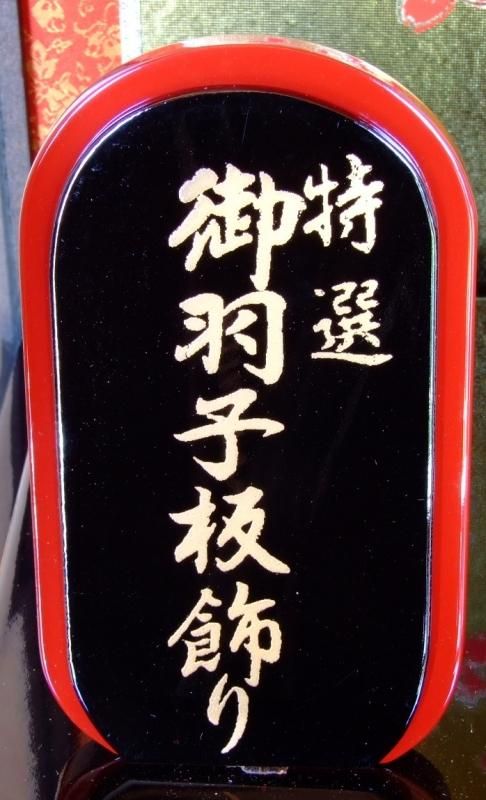 特選
御羽子板飾り